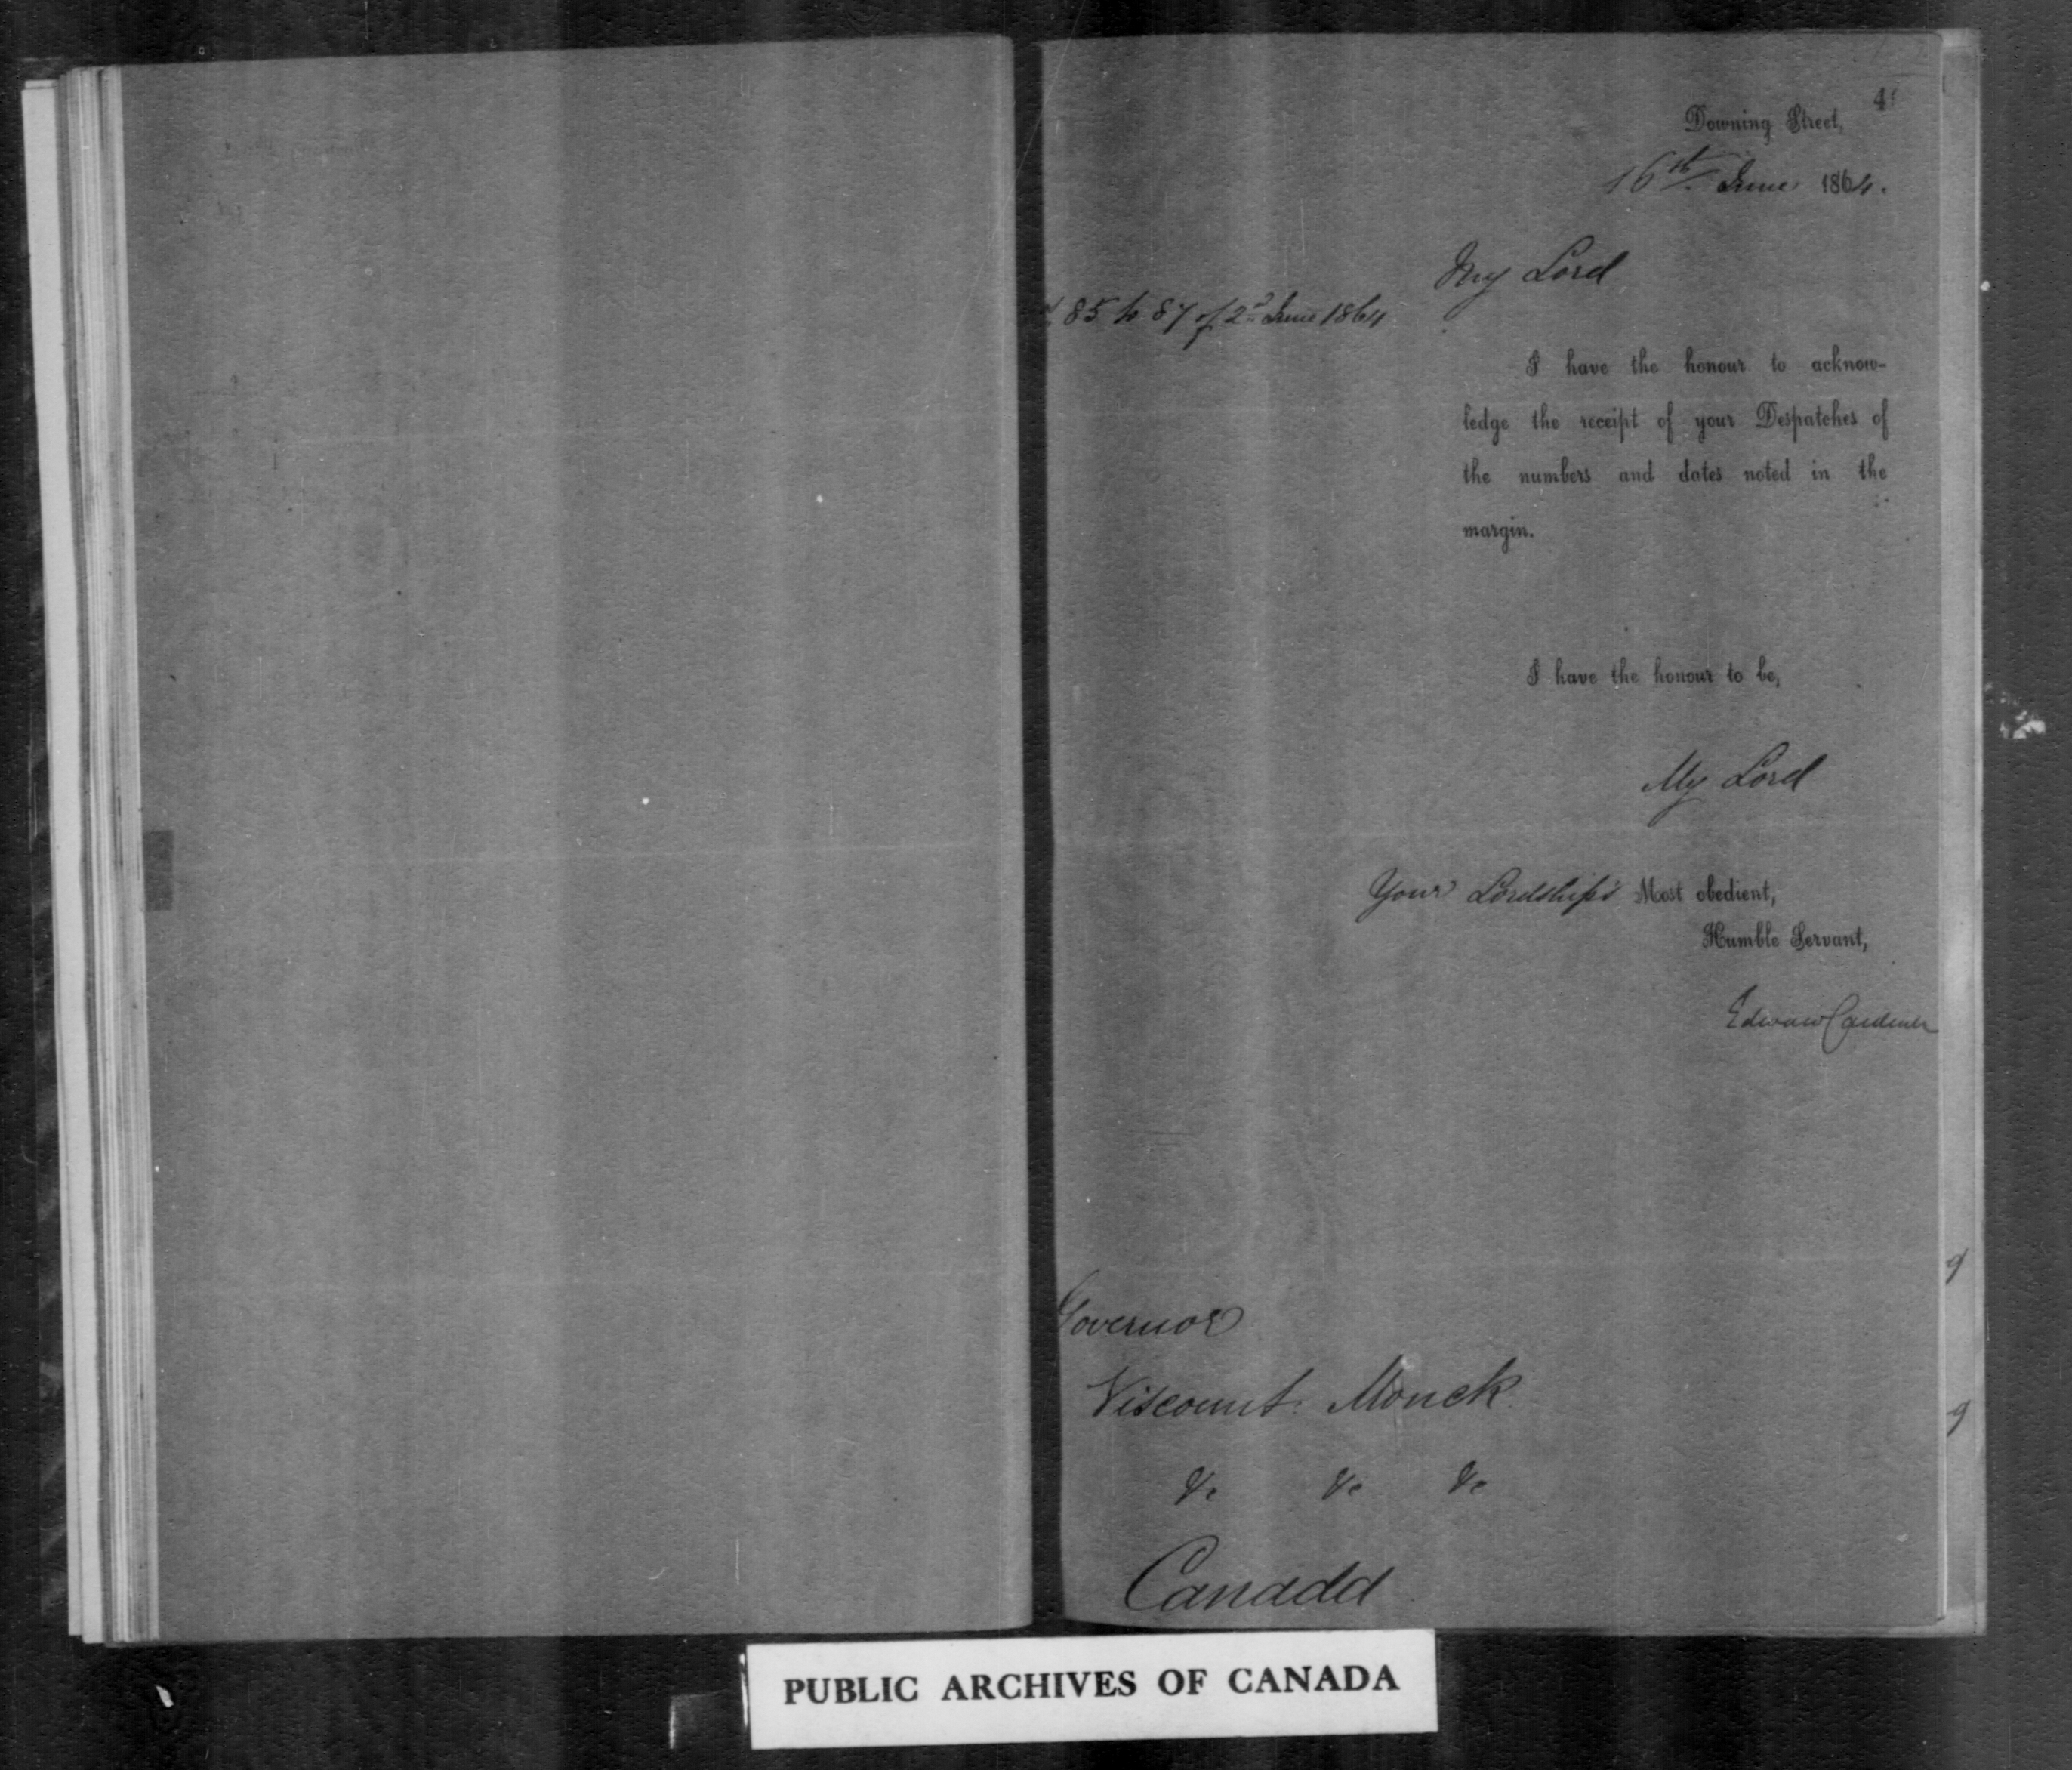 Downing Street,
16th June 1864.
My Lord
85 to 87 of 2d June 1864
I have the honour to acknow-
ledge the receipt of your Despatches of
the numbers and dates noted in the
margin.
I have the honour to be,
My Lord
Your Lordship's Most obedient,
Humble Servant,
Edward Cardwell
Governor
Viscount Monck
&c &c &c
Canada
PUBLIC ARCHIVES OF CANADA